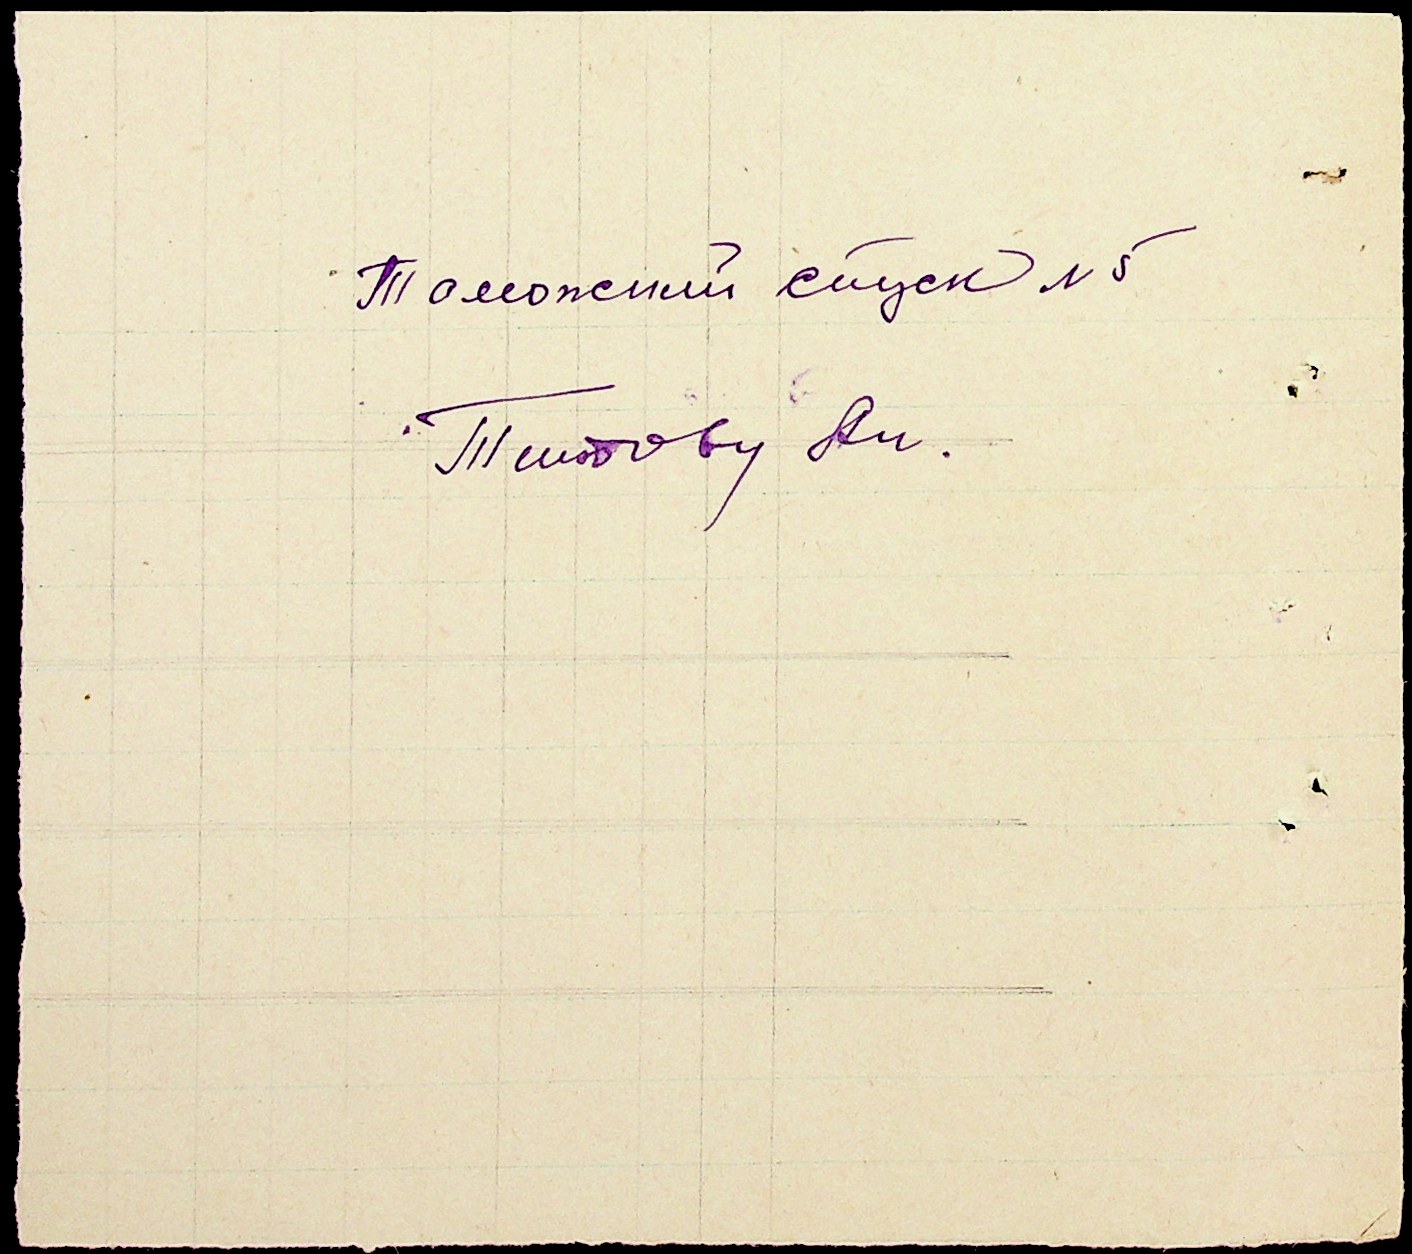 Таможский спуск № 5
Титову Ан.